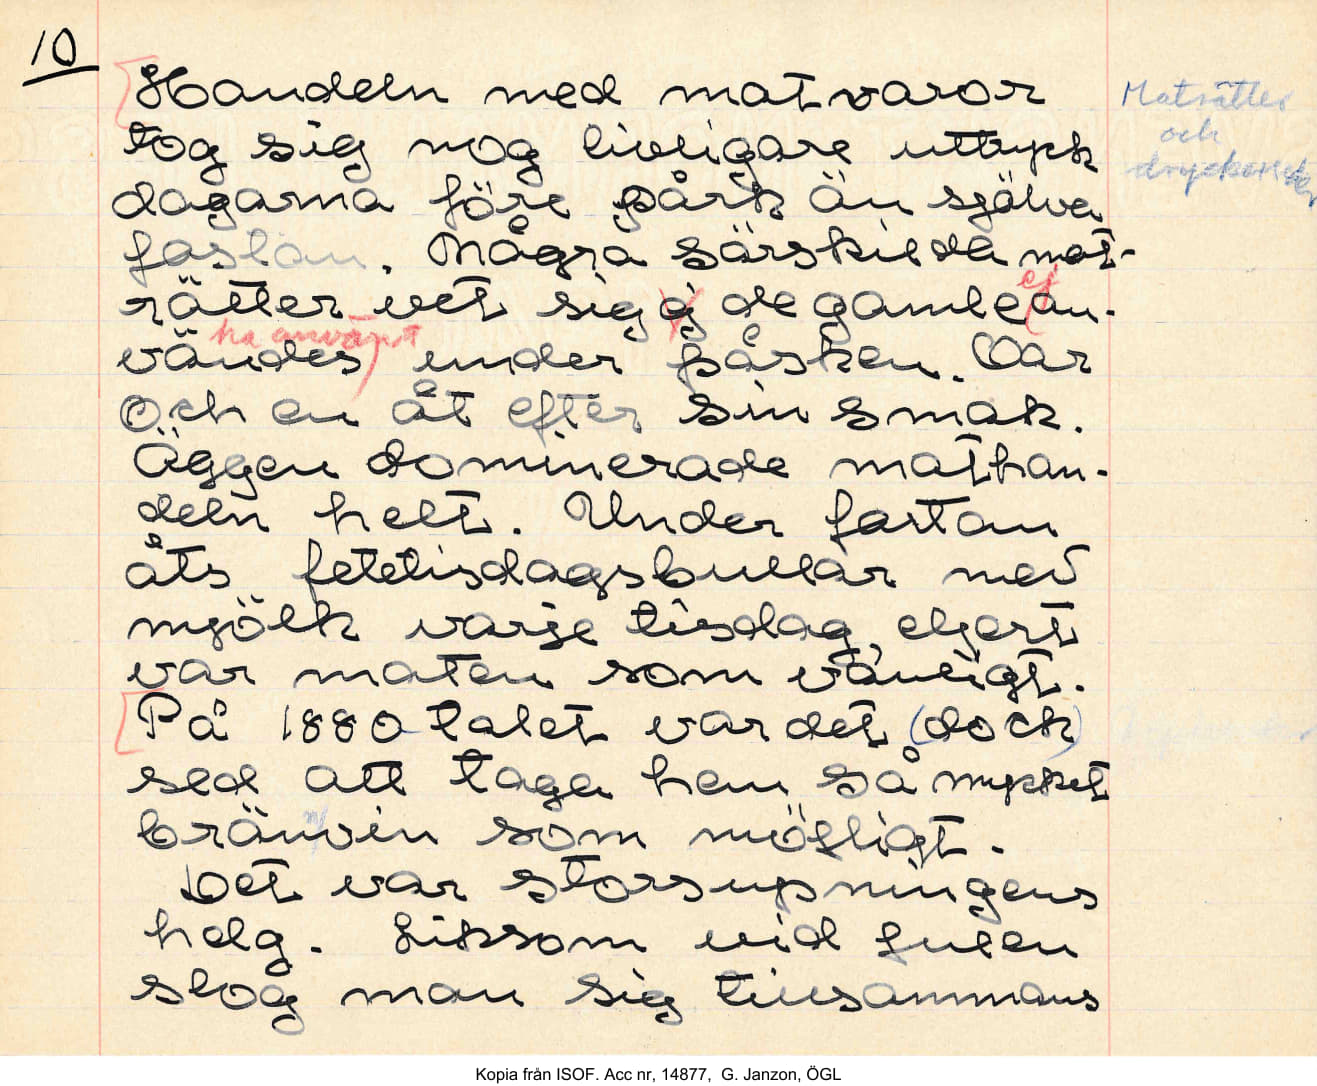 10
Handeln med matvaror
tog sig nog livligare uttryck
dagarna före påsk än själva
fastan. Några särskilda mat-
rätter vet sig ej de gamle ej an-
ha använt
vändes under påsken. Var
och en åt efter sin smak.
Äggen dominerade mathan-
deln helt. Under fastan
åts fetetisdagsbullar med
mjölk varje tisdag, eljest
var maten som vanligt.
På 1880-talet var det (dock)
sed att taga hem så mycket
brännvin som möjligt.
Det var storsupningens
helg. Liksom vid julen
slog man sig tillsammans
Maträtter
och
drycker
Kopia från ISOF. Acc nr, 14877, G. Janzon, ÖGL